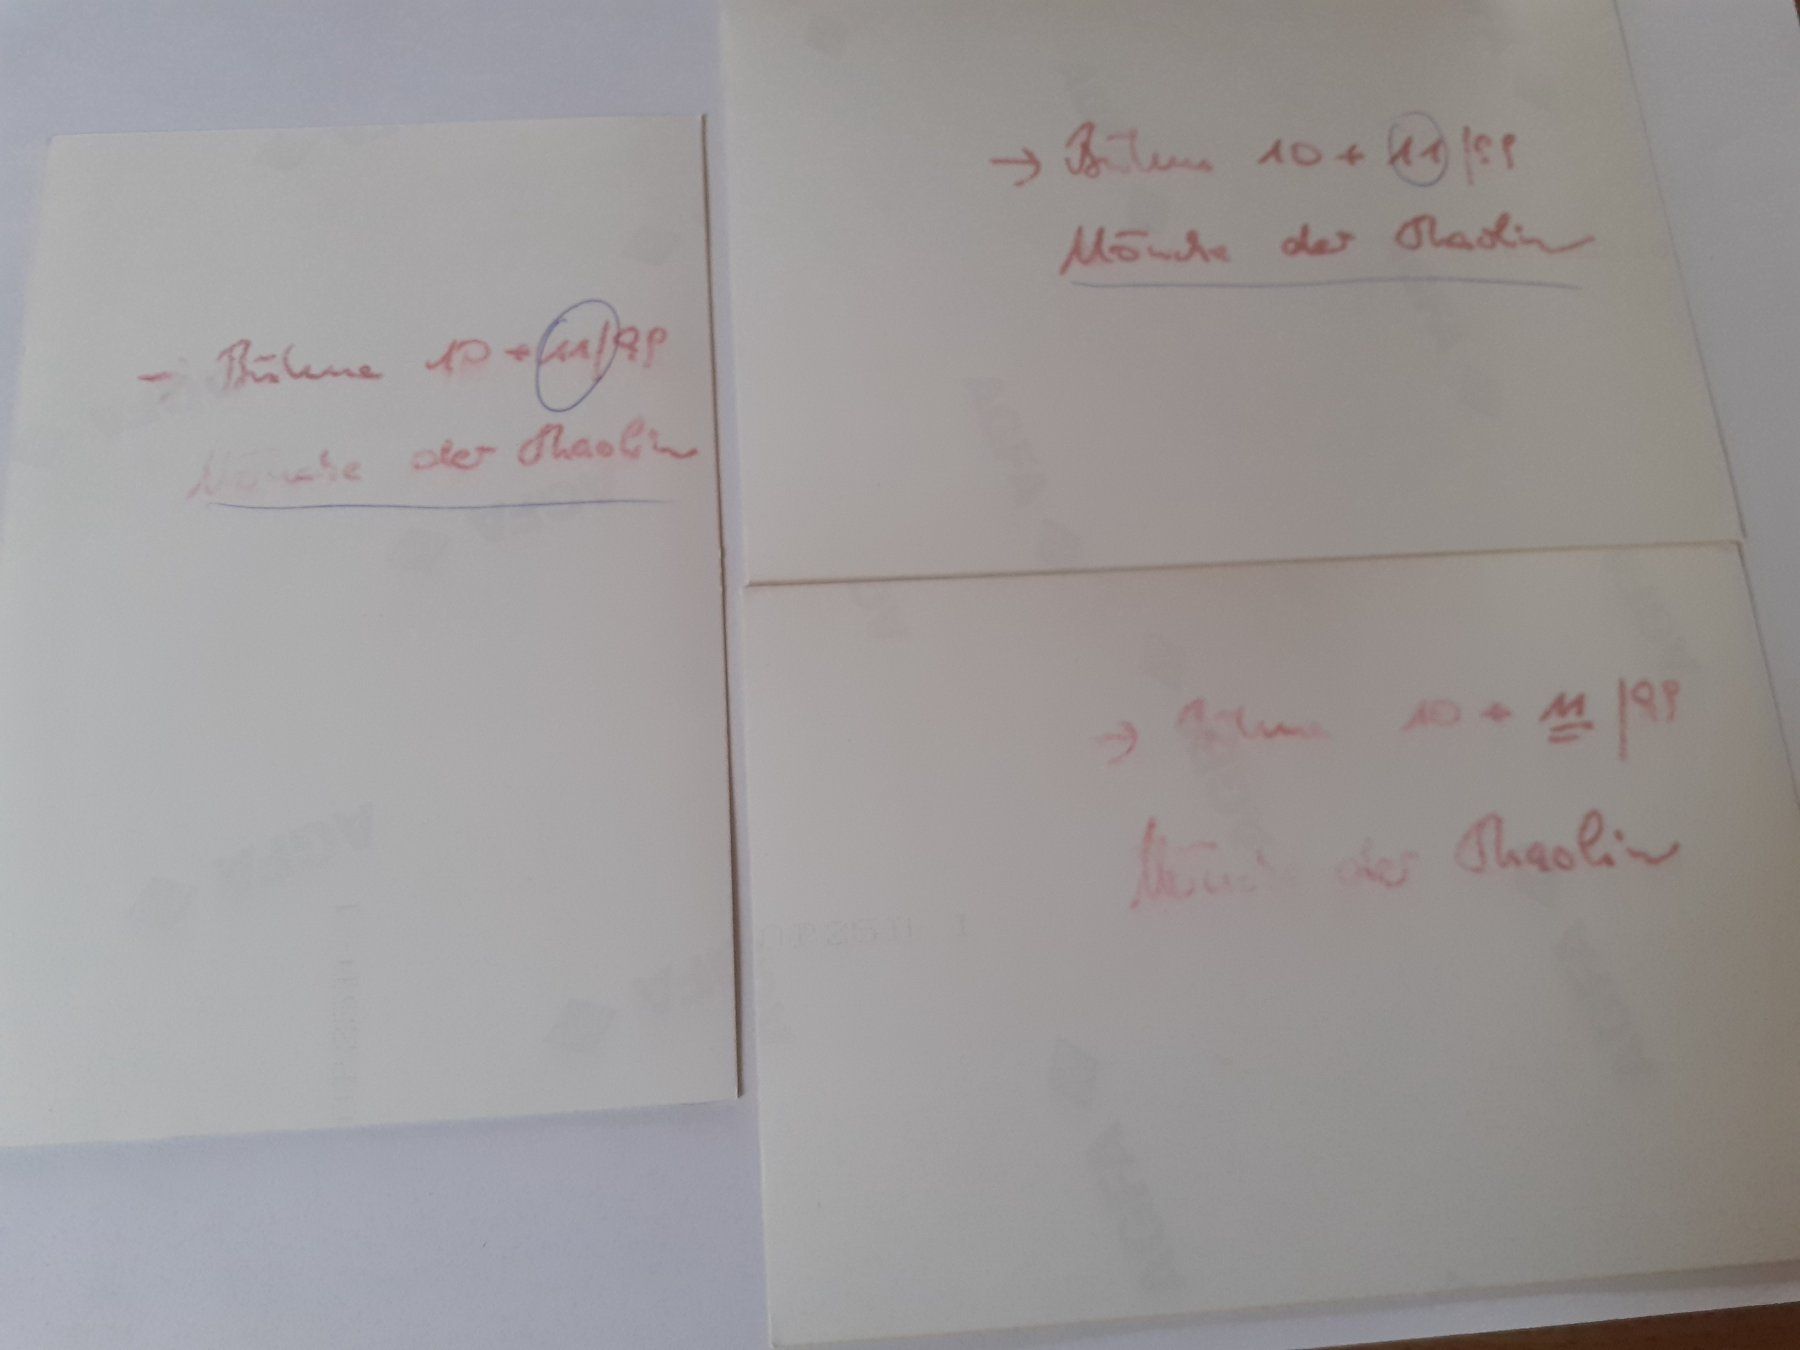 → Bühne 10 + 11/99
Mönche der Shaolin
→ Bühne 10 + 11/99
Mönche der Shaolin
→ Bühne 10 + 11/99
Mönche der Shaolin
AGFA